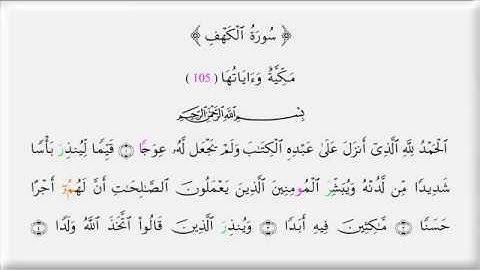 ﴿ سُورَةُ الْكَهْفِ ﴾
مَكِّيَّةٌ وَءَايَاتُهَا ( 105 )
بِسْمِ اللَّهِ الرَّحْمَٰنِ الرَّحِيمِ
الْحَمْدُ لِلَّهِ الَّذِىٓ أَنزَلَ عَلَىٰ عَبْدِهِ الْكِتَٰبَ وَلَمْ يَجْعَل لَّهُۥ عِوَجًا ۝١ قَيِّمًا لِّيُنذِرَ بَأْسًا
شَدِيدًا مِّن لَّدُنْهُ وَيُبَشِّرَ الْمُومِنِينَ الَّذِينَ يَعْمَلُونَ الصَّٰلِحَٰتِ أَنَّ لَهُمُۥٓ أَجْرًا
حَسَنًا ۝٢ مَّٰكِثِينَ فِيهِ أَبَدًا ۝٣ وَيُنذِرَ الَّذِينَ قَالُوا۟ اتَّخَذَ اللَّهُ وَلَدًا ۝٤